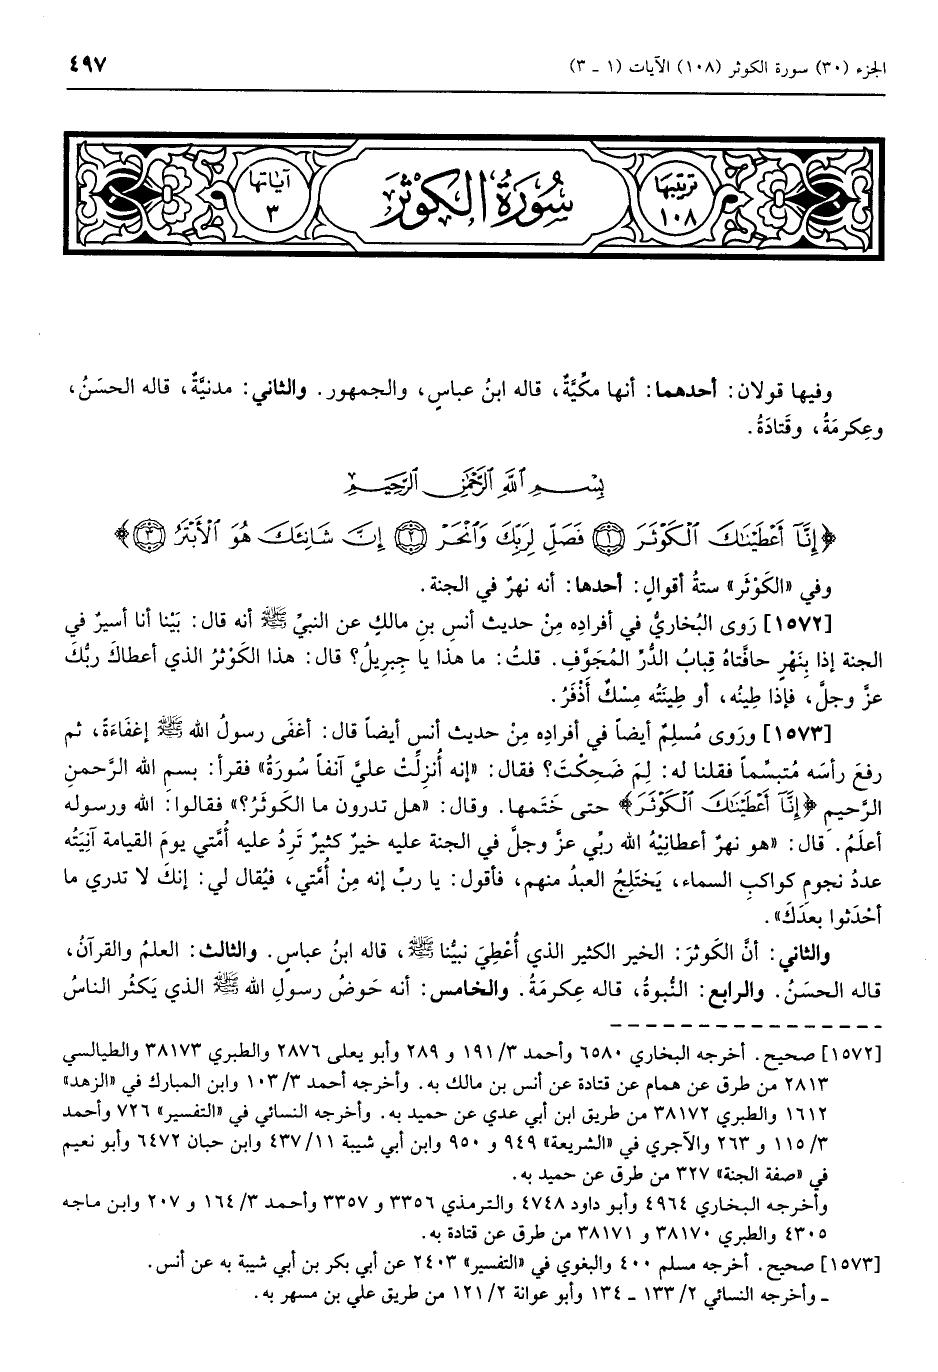 الجزء (٣٠) سورة الكوثر (١٠٨) الآيات (١ - ٣)
٤٩٧
ترتيبها
١٠٨
سُورَةُ الكَوْثَر
آياتها
٣
وفيها قولان: أحدهما: أنها مكِّيَّةٌ، قاله ابنُ عباسٍ، والجمهور. والثاني: مدنيَّةٌ، قاله الحسَنُ،
وعِكرمَةُ، وقَتادَةُ.
بِسْمِ ٱللَّهِ ٱلرَّحْمَٰنِ ٱلرَّحِيمِ
﴿إِنَّآ أَعْطَيْنَٰكَ ٱلْكَوْثَرَ ١ فَصَلِّ لِرَبِّكَ وَٱنْحَرْ ٢ إِنَّ شَانِئَكَ هُوَ ٱلْأَبْتَرُ ٣﴾
وفي «الكَوْثَر» ستةُ أقوالٍ: أحدها: أنه نهرٌ في الجنة.
[١٥٧٢] رَوى البُخاريُّ في أفرادِه مِنْ حديث أنس بنِ مالكٍ عن النبيِّ ﷺ أنه قال: بَيْنا أنا أسيرُ في
الجنة إذا بِنَهْرٍ حافَّتاهُ قِبابُ الدُّرِّ المُجَوَّفِ. قلتُ: ما هذا يا جِبريلُ؟ قال: هذا الكَوْثرُ الذي أعطاكَ ربُّكَ
عزَّ وجلَّ، فإذا طِينُه، أو طِينَتُه مِسْكٌ أَذْفَرُ.
[١٥٧٣] ورَوى مُسلِمٌ أيضاً في أفرادِه مِنْ حديث أنس أيضاً قال: أغفَى رسولُ الله ﷺ إغفَاءَةً، ثم
رفعَ رأسَه مُتبسِّماً فقلنا له: لِمَ ضَحِكْتَ؟ فقال: «إنه أُنزِلَتْ عليَّ آنفاً سُورَةُ» فقرأ: بسم الله الرَّحمنِ
الرَّحيمِ ﴿إِنَّآ أَعْطَيْنَٰكَ ٱلْكَوْثَرَ﴾ حتى ختَمها. وقال: «هل تدرون ما الكَوثَرُ؟» فقالوا: الله ورسوله
أعلَمُ. قال: «هو نهرٌ أعطانِيْهُ الله ربِّي عزَّ وجلَّ في الجنة عليه خيرٌ كثيرٌ تَرِدُ عليه أُمَّتي يومَ القيامة آنِيَتُه
عددُ نجومِ كواكبِ السماء، يَختَلِجُ العبدُ منهم، فأقول: يا ربِّ إنه مِنْ أُمَّتي، فيُقال لي: إنكَ لا تدري ما
أحْدَثوا بعدَكَ».
والثاني: أنَّ الكَوثرَ: الخير الكثير الذي أُعْطِيَ نبيُّنا ﷺ، قاله ابنُ عباسٍ. والثالث: العلمُ والقرآنُ،
قاله الحسَنُ. والرابع: النُّبوةُ، قاله عِكرمَةُ. والخامس: أنه حَوضُ رسولِ الله ﷺ الذي يَكثُر الناسُ
[١٥٧٢] صحيح. أخرجه البخاري ٦٥٨٠ وأحمد ٣/ ١٩١ و ٢٨٩ وأبو يعلى ٢٨٧٦ والطبري ٣٨١٧٣ والطيالسي
٢٨١٣ من طرق عن همام عن قتادة عن أنس بن مالك به. وأخرجه أحمد ٣/ ١٠٣ وابن المبارك في «الزهد»
١٦١٢ والطبري ٣٨١٧٢ من طريق ابن أبي عدي عن حميد به. وأخرجه النسائي في «التفسير» ٧٢٦ وأحمد
٣/ ١١٥ و ٢٦٣ والآجري في «الشريعة» ٩٤٩ و ٩٥٠ وابن أبي شيبة ١١/ ٤٣٧ وابن حبان ٦٤٧٢ وأبو نعيم
في «صفة الجنة» ٣٢٧ من طرق عن حميد به.
وأخرجه البخاري ٤٩٦٤ وأبو داود ٤٧٤٨ والترمذي ٣٣٥٦ و ٣٣٥٧ وأحمد ٣/ ١٦٤ و ٢٠٧ وابن ماجه
٤٣٠٥ والطبري ٣٨١٧٠ و ٣٨١٧١ من طرق عن قتادة به.
[١٥٧٣] صحيح. أخرجه مسلم ٤٠٠ والبغوي في «التفسير» ٢٤٠٣ عن أبي بكر بن أبي شيبة به عن أنس.
ـ وأخرجه النسائي ٢/ ١٣٣ ـ ١٣٤ وأبو عوانة ٢/ ١٢١ من طريق علي بن مسهر به.